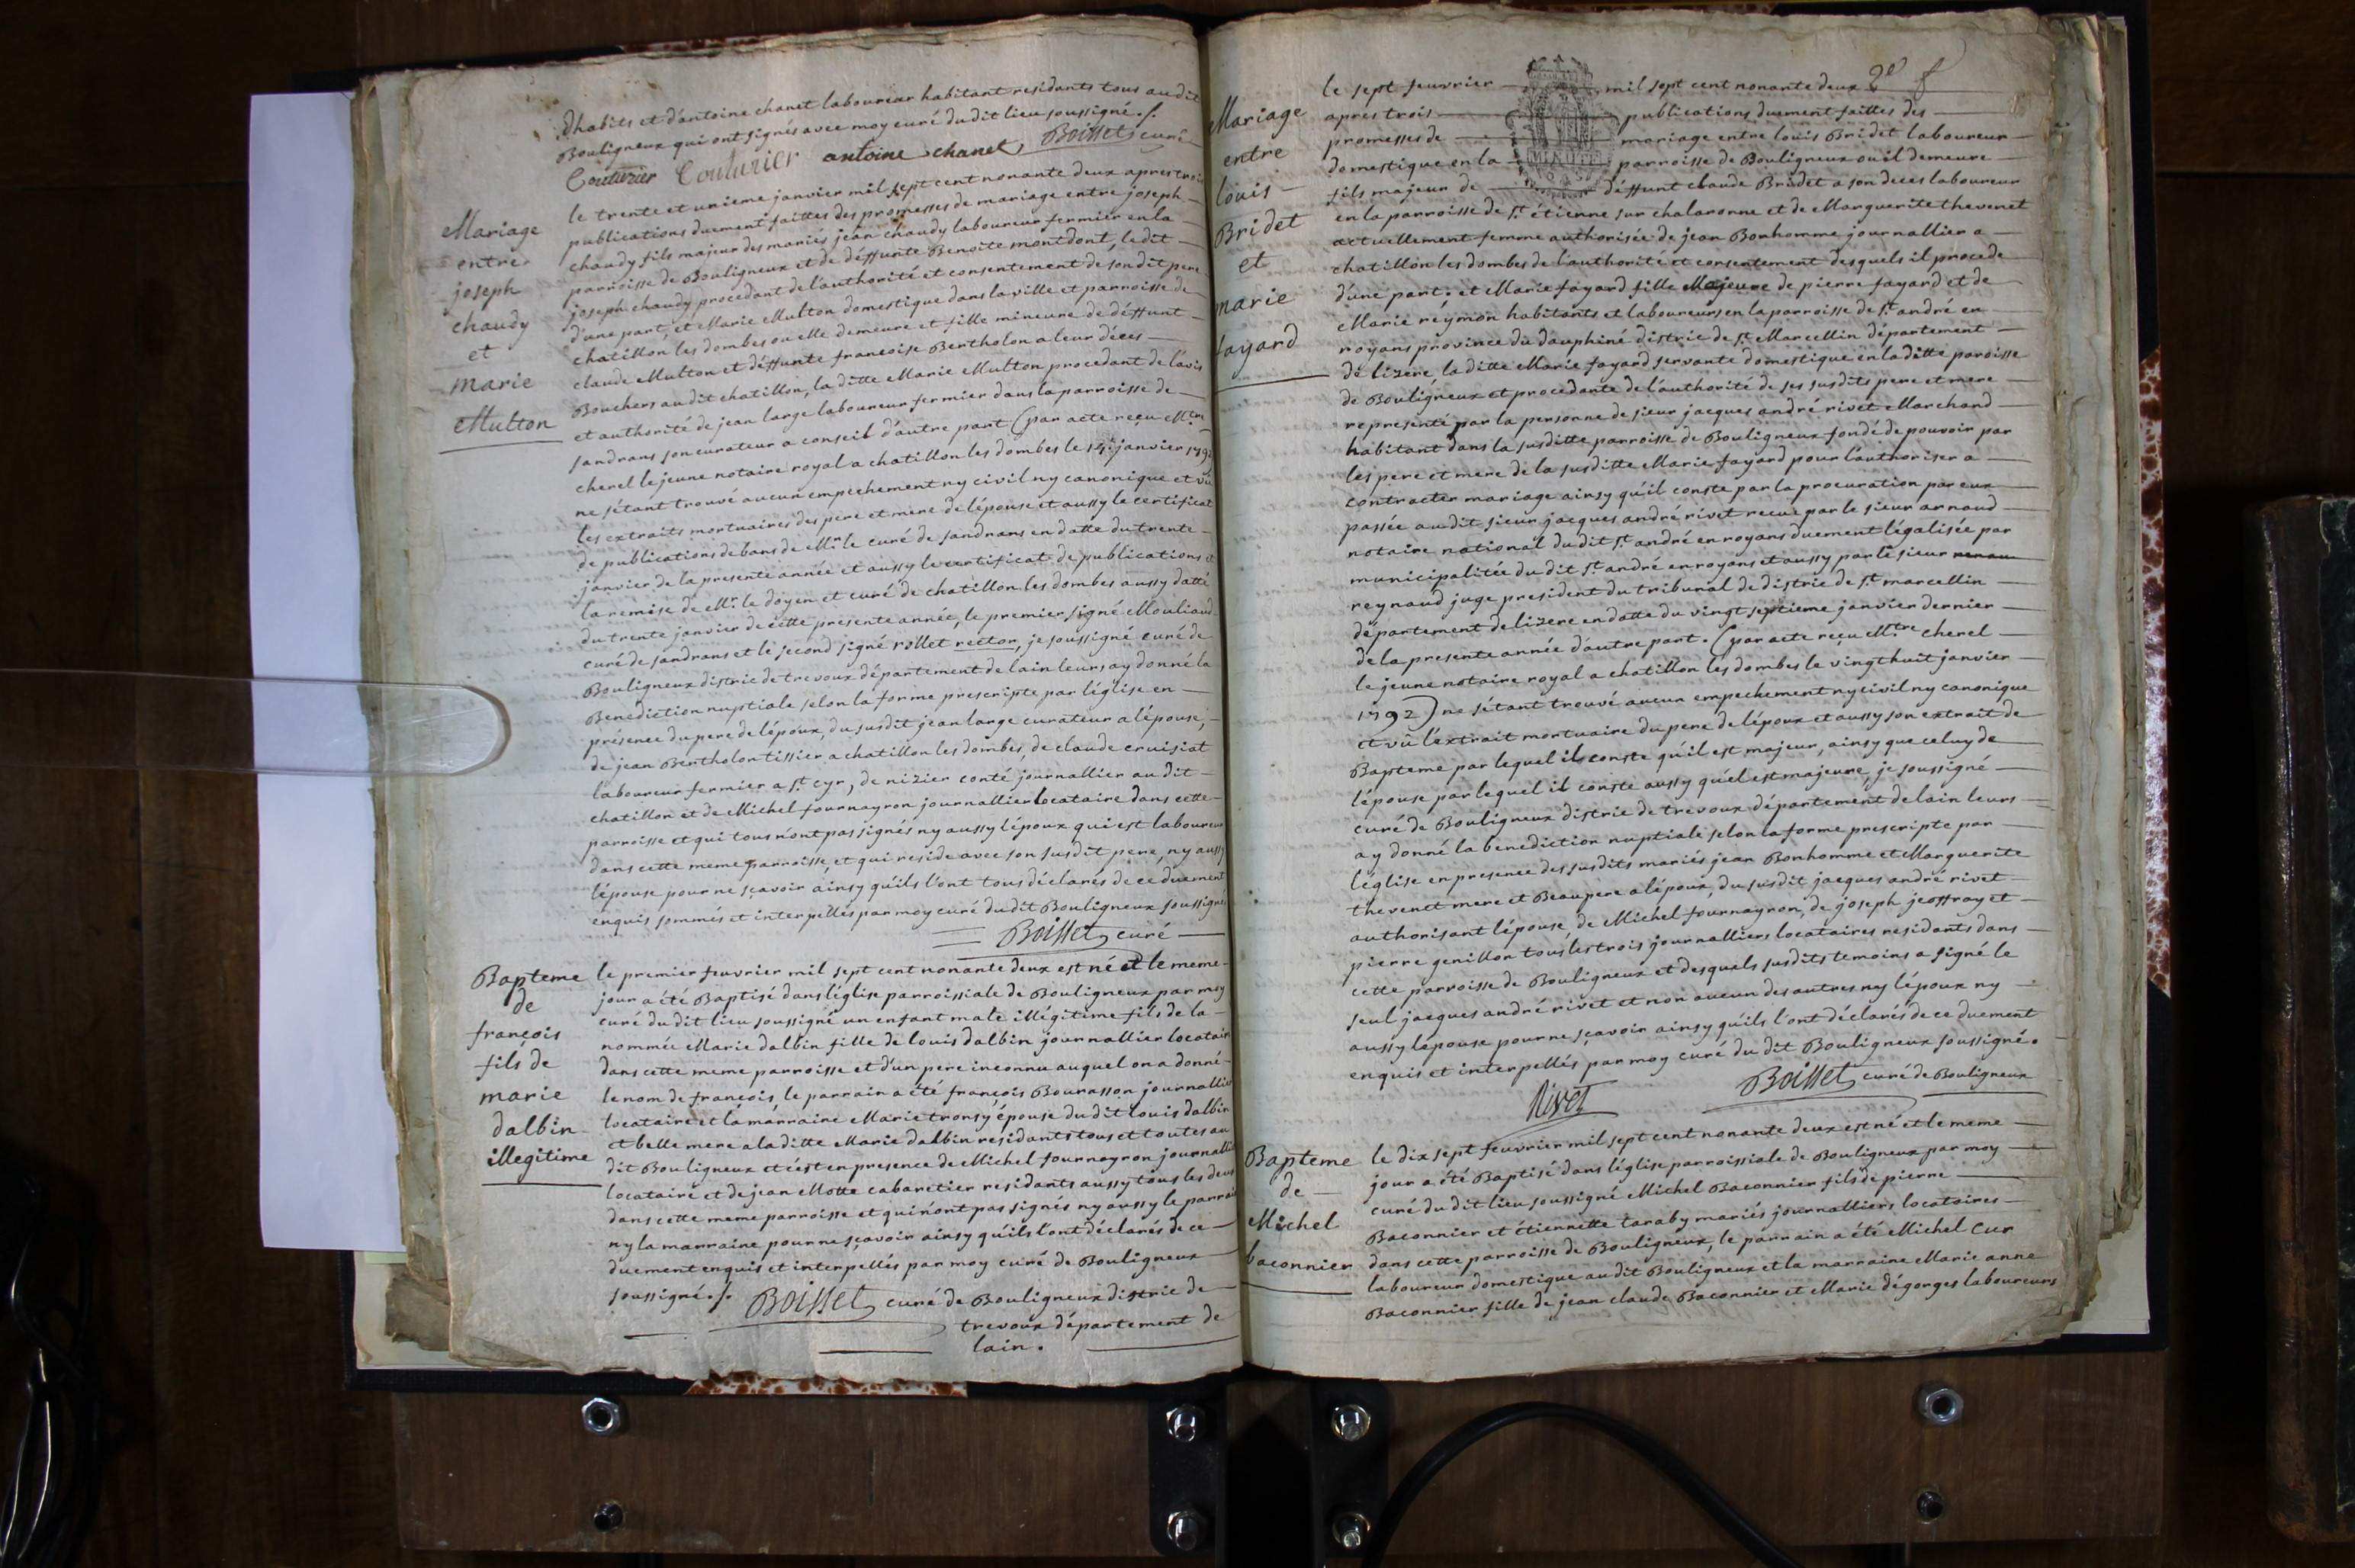 d'habits et d'antoine chanet laboureur habitant residants tous audit
Bouligneux qui ont signés avec moy curé du dit lieu soussigné ./.
Couturier Couturier antoine chanet Boisset curé
Mariage
entre
joseph
chaudy
et
marie
Multon
le trente et unieme janvier mil sept cent nonante deux apres trois
publications duement faittes des promesses de mariage entre joseph
chaudy fils majeur des mariés jean chaudy laboureur fermier en la
parroisse de Bouligneux et de déffunte Benoite montdont, le dit
joseph chaudy procedant de l'authorité et consentement de son dit pere
d'une part, et Marie Multon domestique dans la ville et parroisse de
chatillon les dombes ou elle demeure et fille mineure de déffunt
claude Multon et déffunte francoise Bertholon a leur déces
Bouchers au dit chatillon, la ditte Marie Multon procedant de l'avis
et authorité de jean large laboureur fermier dans la parroisse de
sandrans son curateur a conseil d'autre part (par acte reçu Mtre
cherel le jeune notaire royal a chatillon les dombes le 14e janvier 1792
ne s'étant trouvé aucun empechement ny civil ny canonique et vû
les extraits mortuaires des pere et mere de l'épouse et aussy le certificat
de publications de bans de Mr. le curé de sandrans en datte du trente
janvier de la presente année et aussy le certificat de publications et
la remise de Mr. le doyen et curé de chatillon les dombes aussy datté
du trente janvier de cette présente année, le premier signé Mouliaud
curé de sandrans et le second signé rollet rector, je soussigné curé de
Bouligneux distric de trevoux département de lain leurs ay donné la
Benediction nuptiale selon la forme prescripte par l'église en
présence du pere de l'époux, du susdit jean large curateur a l'épouse,
de jean Bertholon tissier a chatillon les dombes, de claude cruisiat
laboureur fermier a St. cyr, de nizier conté journallier au dit
chatillon et de Michel fournayron journallier locataire dans cette
parroisse et qui tous n'ont pas signés ny aussy l'époux qui est laboureur
dans cette meme parroisse, et qui reside avec son susdit pere, ny aussy
l'épouse pour ne sçavoir ainsy qu'ils l'ont tous déclarés de ce duement
enquis sommés et interpellés par moy curé du dit Bouligneux soussigné
Boisset curé
Bapteme
de
françois
fils de
marie
dalbin
illegitime
le premier feuvrier mil sept cent nonante deux est né et le meme
jour a été Baptisé dans l'église parroissiale de Bouligneux par moy
curé du dit lieu soussigné un enfant male illégitime fils de la
nommée Marie dalbin fille de louis dalbin journallier locataire
dans cette meme parroisse et d'un pere inconnu auquel on a donné
le nom de françois, le parrain a été françois Bourasson journallier
locataire et la marraine Marie tronsy épouse du dit louis dalbin
et belle mere a la ditte Marie dalbin residants tous et toutes au
dit Bouligneux et c'est en presence de Michel fournayron journallier
locataire et de jean Motte cabaretier residants aussy tous les deux
dans cette meme parroisse et qui n'ont pas signés ny aussy le parrain
ny la marraine pour ne sçavoir ainsy qu'ils l'ont déclarés de ce
duement enquis et interpellés par moy curé de Bouligneux
soussigné ./. Boisset curé de Bouligneux distric de
trevoux département de
lain.
Mariage
entre
louis
Bridet
et
marie
fayard
2e f
MINUTE
le sept feuvrier mil sept cent nonante deux
apres trois publications duement faittes des
promesses de mariage entre louis Bridet laboureur
domestique en la parroisse de Bouligneux ou il demeure
fils majeur de déffunt claude Bridet a son deces laboureur
en la parroisse de St. étienne sur chalaronne et de Marguerite thevenet
actuellement femme authorisée de jean Bonhomme journallier a
chatillon les dombes de l'authorité et consentement desquels il procede
d'une part. et Marie fayard fille Majeure de pierre fayard et de
Marie reymon habitants et laboureurs en la parroisse de St. andré en
royans province du dauphiné distric de St. Marcellin département
de lizere, la ditte Marie fayard servante domestique en la ditte paroisse
de Bouligneux et procedante de l'authorité de ses susdits pere et mere
representé par la personne de sieur jacques andré rivet Marchand
habitant dans la susditte parroisse de Bouligneux fondé de pouvoir par
les pere et mere de la susditte Marie fayard pour l'authoriser a
contracter mariage ainsy qu'il conste par la procuration par eux
passée au dit sieur jacques andré rivet recue par le sieur arnaud
notaire national du dit St. andré en royans duement légalisée par
municipalitée du dit St. andré en royans et aussy par le sieur
reynaud juge president du tribunal de distric de St. marcellin
département de lizere en datte du vingt septieme janvier dernier
de la presente année d'autre part. (par acte reçu Mtre cherel
le jeune notaire royal a chatillon les dombes le vingt huit janvier
1792) ne s'étant trouvé aucun empechement ny civil ny canonique
et vû l'extrait mortuaire du pere de l'époux et aussy son extrait de
Bapteme par lequel il conste qu'il est majeur, ainsy que celuy de
l'épouse par lequel il conste aussy qu'el est majeure, je soussigné
curé de Bouligneux distric de trevoux département de lain leurs
ay donné la benediction nuptiale selon la forme prescripte par
l'église en presence des susdits mariés jean Bonhomme et Marguerite
thevenet mere et Beaupere a l'époux, du susdit jacques andré rivet
authorisant l'épouse, de Michel fournayron, de joseph jeoffray et
pierre genillon tous les trois journalliers locataires residants dans
cette parroisse de Bouligneux et desquels susdits temoins a signé le
seul jacques andré rivet et non aucun des autres ny l'époux ny
aussy l'épouse pour ne sçavoir ainsy qu'ils l'ont déclarés de ce duement
enquis et interpellés par moy curé du dit Bouligneux soussigné.
Rivet Boisset curé de Bouligneux
Bapteme
de
Michel
baconnier
le dix sept feuvrier mil sept cent nonante deux est né et le meme
jour a été Baptisé dans l'église parroissiale de Bouligneux par moy
curé du dit lieu soussigné Michel Baconnier fils de pierre
Baconnier et étiennette taraby mariés journalliers locataires
dans cette parroisse de Bouligneux, le parrain a été Michel Cur
laboureur domestique au dit Bouligneux et la marraine Marie anne
Baconnier fille de jean claude Baconnier et Marie dégorges laboureurs